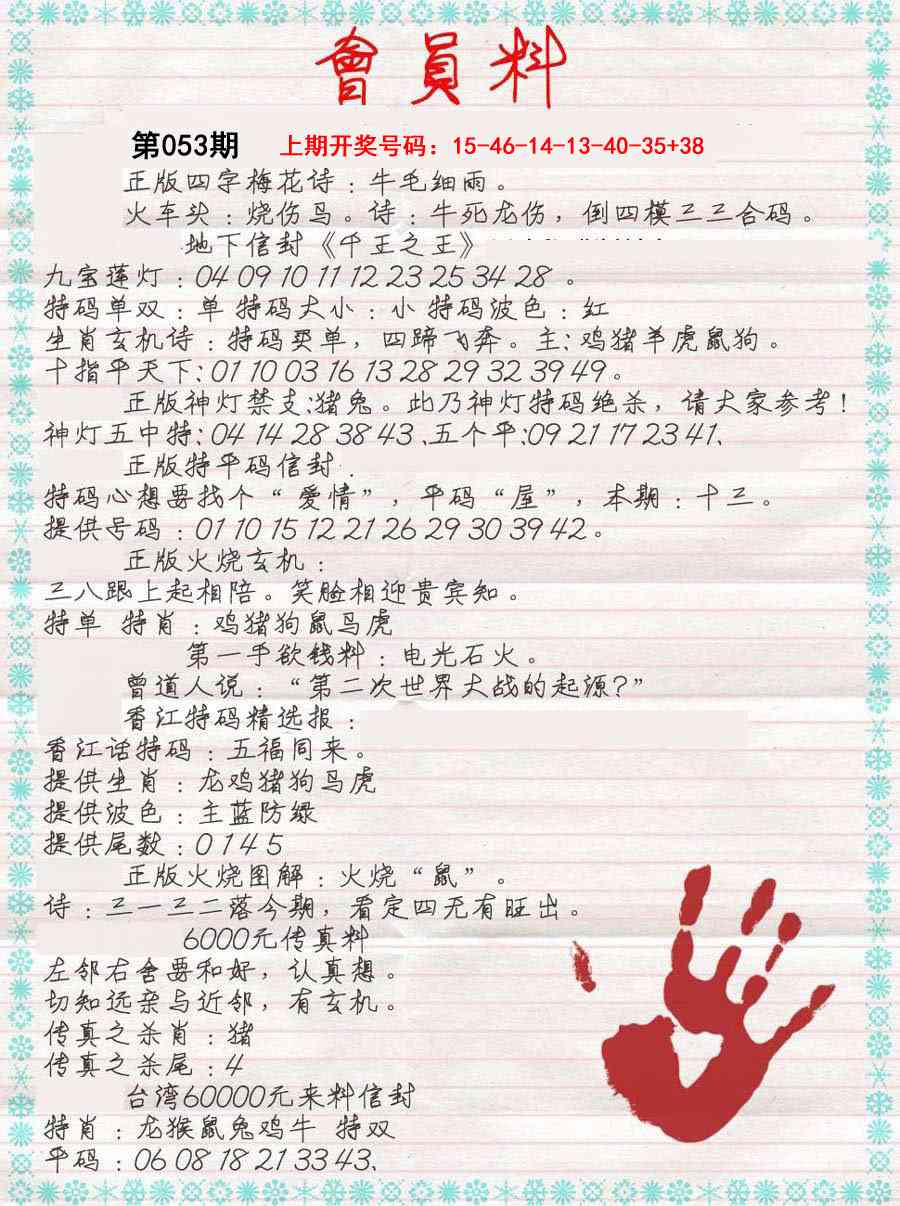 會員料
第053期 上期开奖号码：15-46-14-13-40-35+38
正版四字梅花诗：牛毛细雨。
火车头：烧伤鸟。诗：牛死龙伤，倒四模三三合码。
地下信封《千王之王》
九宝莲灯：04 09 10 11 12 23 25 34 28 。
特码单双：单 特码大小：小 特码波色：红
生肖玄机诗：特码买单，四蹄飞奔。主：鸡猪羊虎鼠狗。
十指平天下：01 10 03 16 13 28 29 32 39 49。
正版神灯禁支：猪兔。此乃神灯特码绝杀，请大家参考！
神灯五中特：04 14 28 38 43、五个平：09 21 17 23 41、
正版特平码信封：
特码心想要找个“爱情”，平码“屋”，本期：十三。
提供号码：01 10 15 12 21 26 29 30 39 42。
正版火烧玄机：
三八跟上起相陪。笑脸相迎贵宾知。
特单 特肖：鸡猪狗鼠马虎
第一手欲钱料：电光石火。
曾道人说：“第二次世界大战的起源？”
香江特码精选报：
香江话特码：五福同来。
提供生肖：龙鸡猪狗马虎
提供波色：主蓝防绿
提供尾数：0 1 4 5
正版火烧图解：火烧“鼠”。
诗：三一三二落今期，看定四无有旺出。
6000元传真料
左邻右舍要和好，认真想。
切知远亲与近邻，有玄机。
传真之杀肖：猪
传真之杀尾：4
台湾60000元来料信封
特肖：龙猴鼠兔鸡牛 特双
平码：06 08 18 21 33 43、